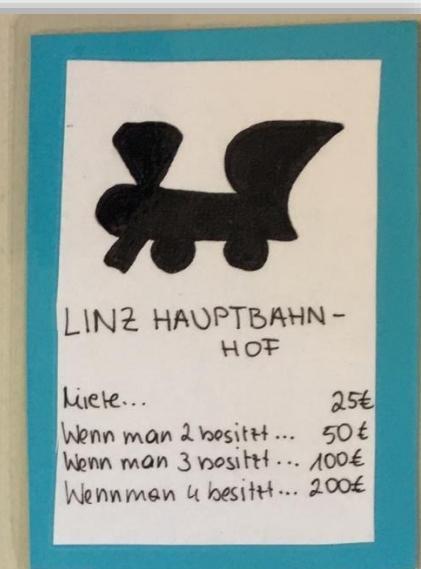 LINZ HAUPTBAHN-
HOF
Miete... 25€
Wenn man 2 besitzt... 50€
Wenn man 3 besitzt... 100€
Wenn man 4 besitzt... 200€